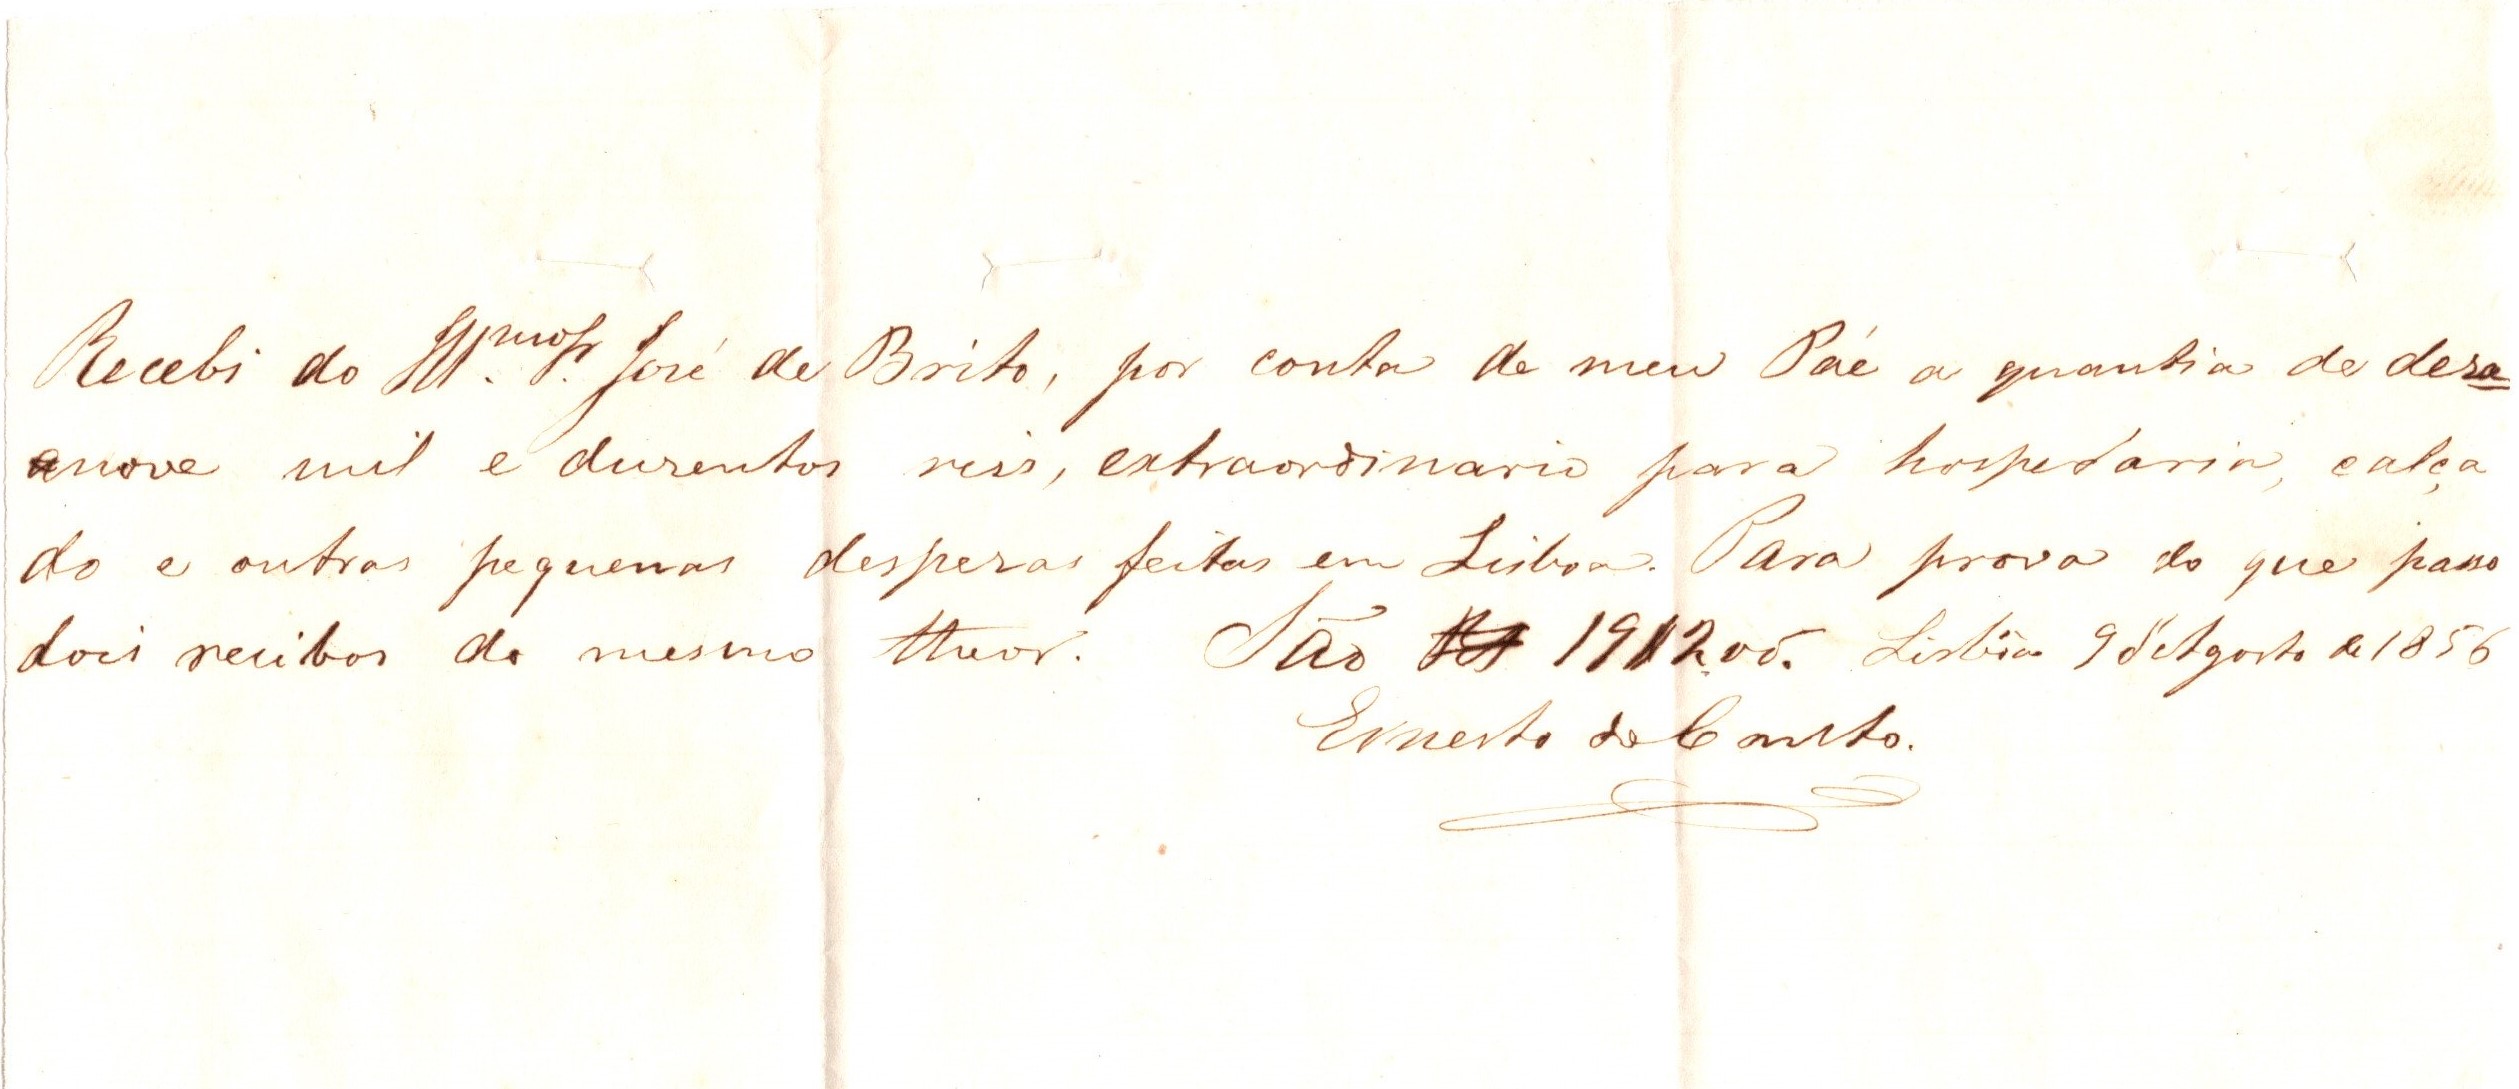 Recebi do Ill.mo Sr. José de Brito, por conta de meu Páe a quantia de deza
nove mil e duzentos reis, extraordinario para hospedaria, calça
do e outras pequenas despezas feitas em Lisboa. Para prova do que passo
dois recibos do mesmo theor. São 19$200. Lisbôa 9 d'Agosto de 1856
Ernesto do Canto.